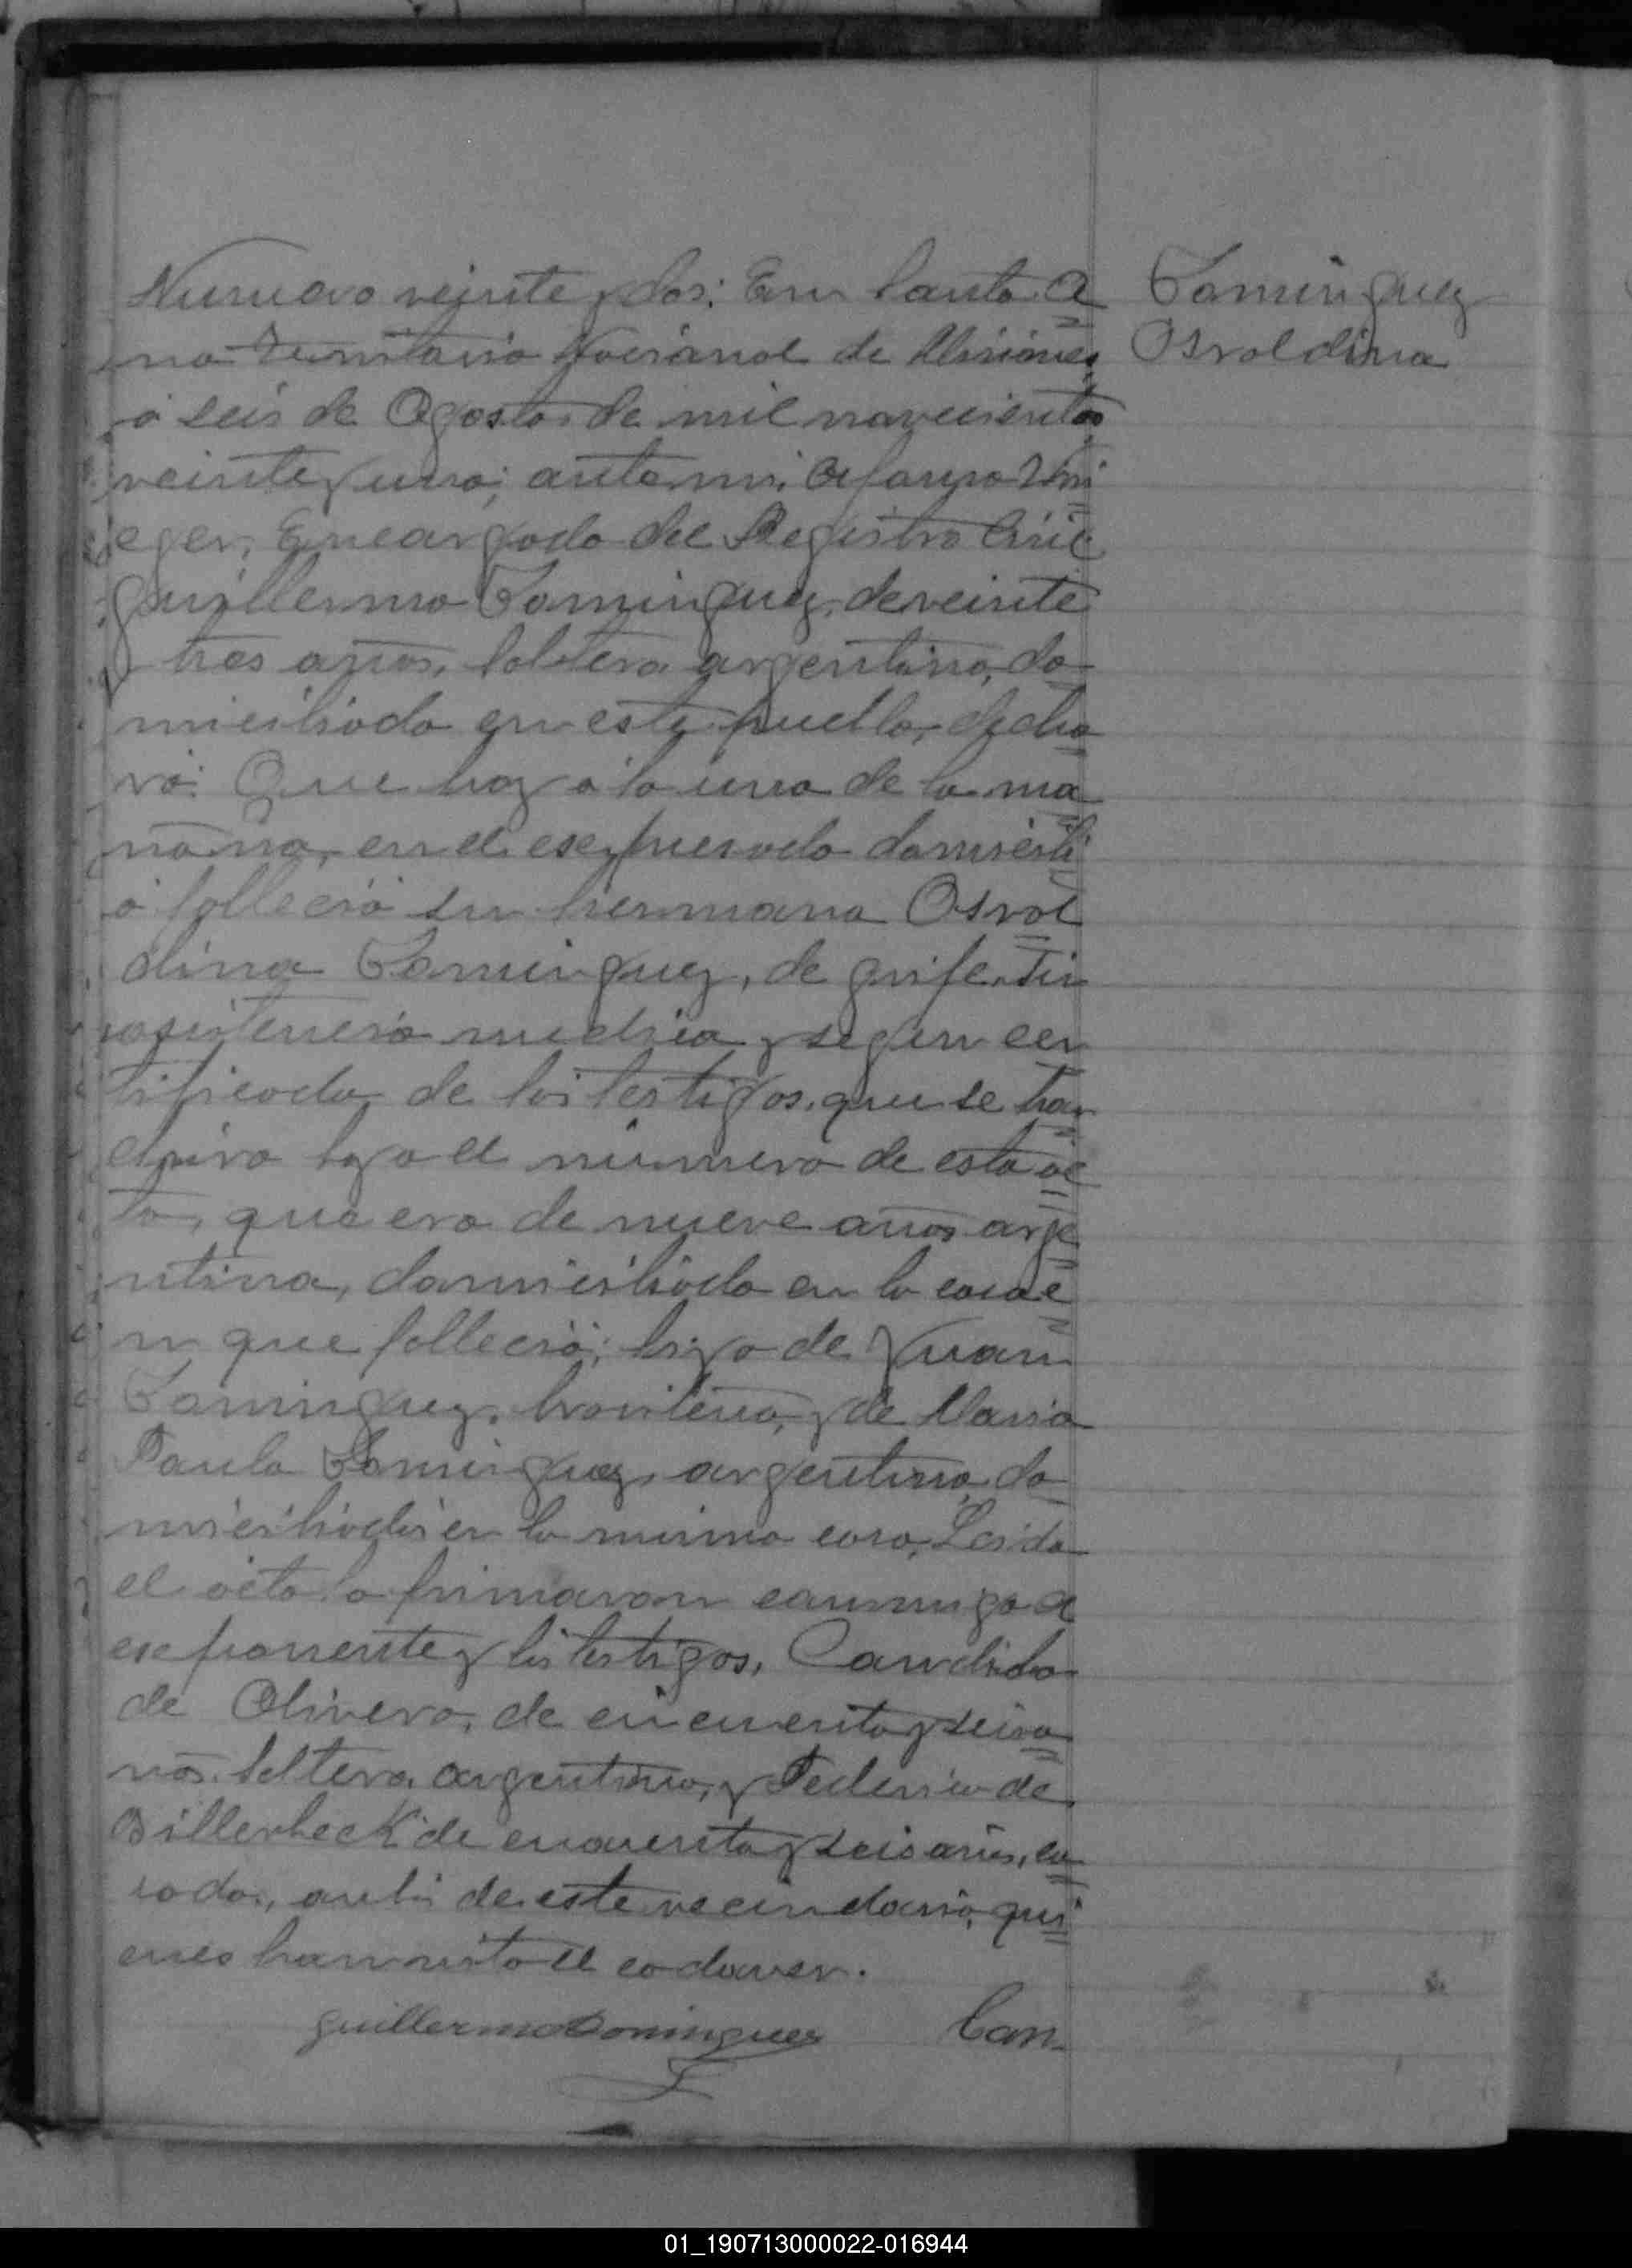 Numero veinte y dos: En Santa A
na Territorio Nacional de Misiones,
á seis de Agosto de mil novecientos
veinte y uno; ante mi,
eger, Encargado del Registro Civil
Guillermo Dominguez, de veinte
y tres años, soltero argentino, do
miciliado en este pueblo, decla
ró: Que hoy á la una de la ma
ñana, en el expresado domicili
o falleció su hermana Osval
dina Dominguez, de gripe, sin
asistencia medica y segun cer
tificado de los testigos, que se har
chiva bajo el número de esta ac
ta, que era de nueve años arge
ntina, domiciliada en la casa e
n que falleció; hija de Juan
Dominguez, brasilero, y de Maria
Paula Dominguez, argentina, do
miciliados en la misma casa, Leida
el acta la firmaron conmigo el
exponente y los testigos, Candido
de Olivera, de cincuenta y seis a
ños, soltero, argentino, y Federico de
Billerbeck de cuarenta y seis años, ca
sado, ambos de este vecindario, qui
enes han visto el cadaver.
Guillermo Dominguez Can-
Dominguez
Osvaldina
01_190713000022-016944